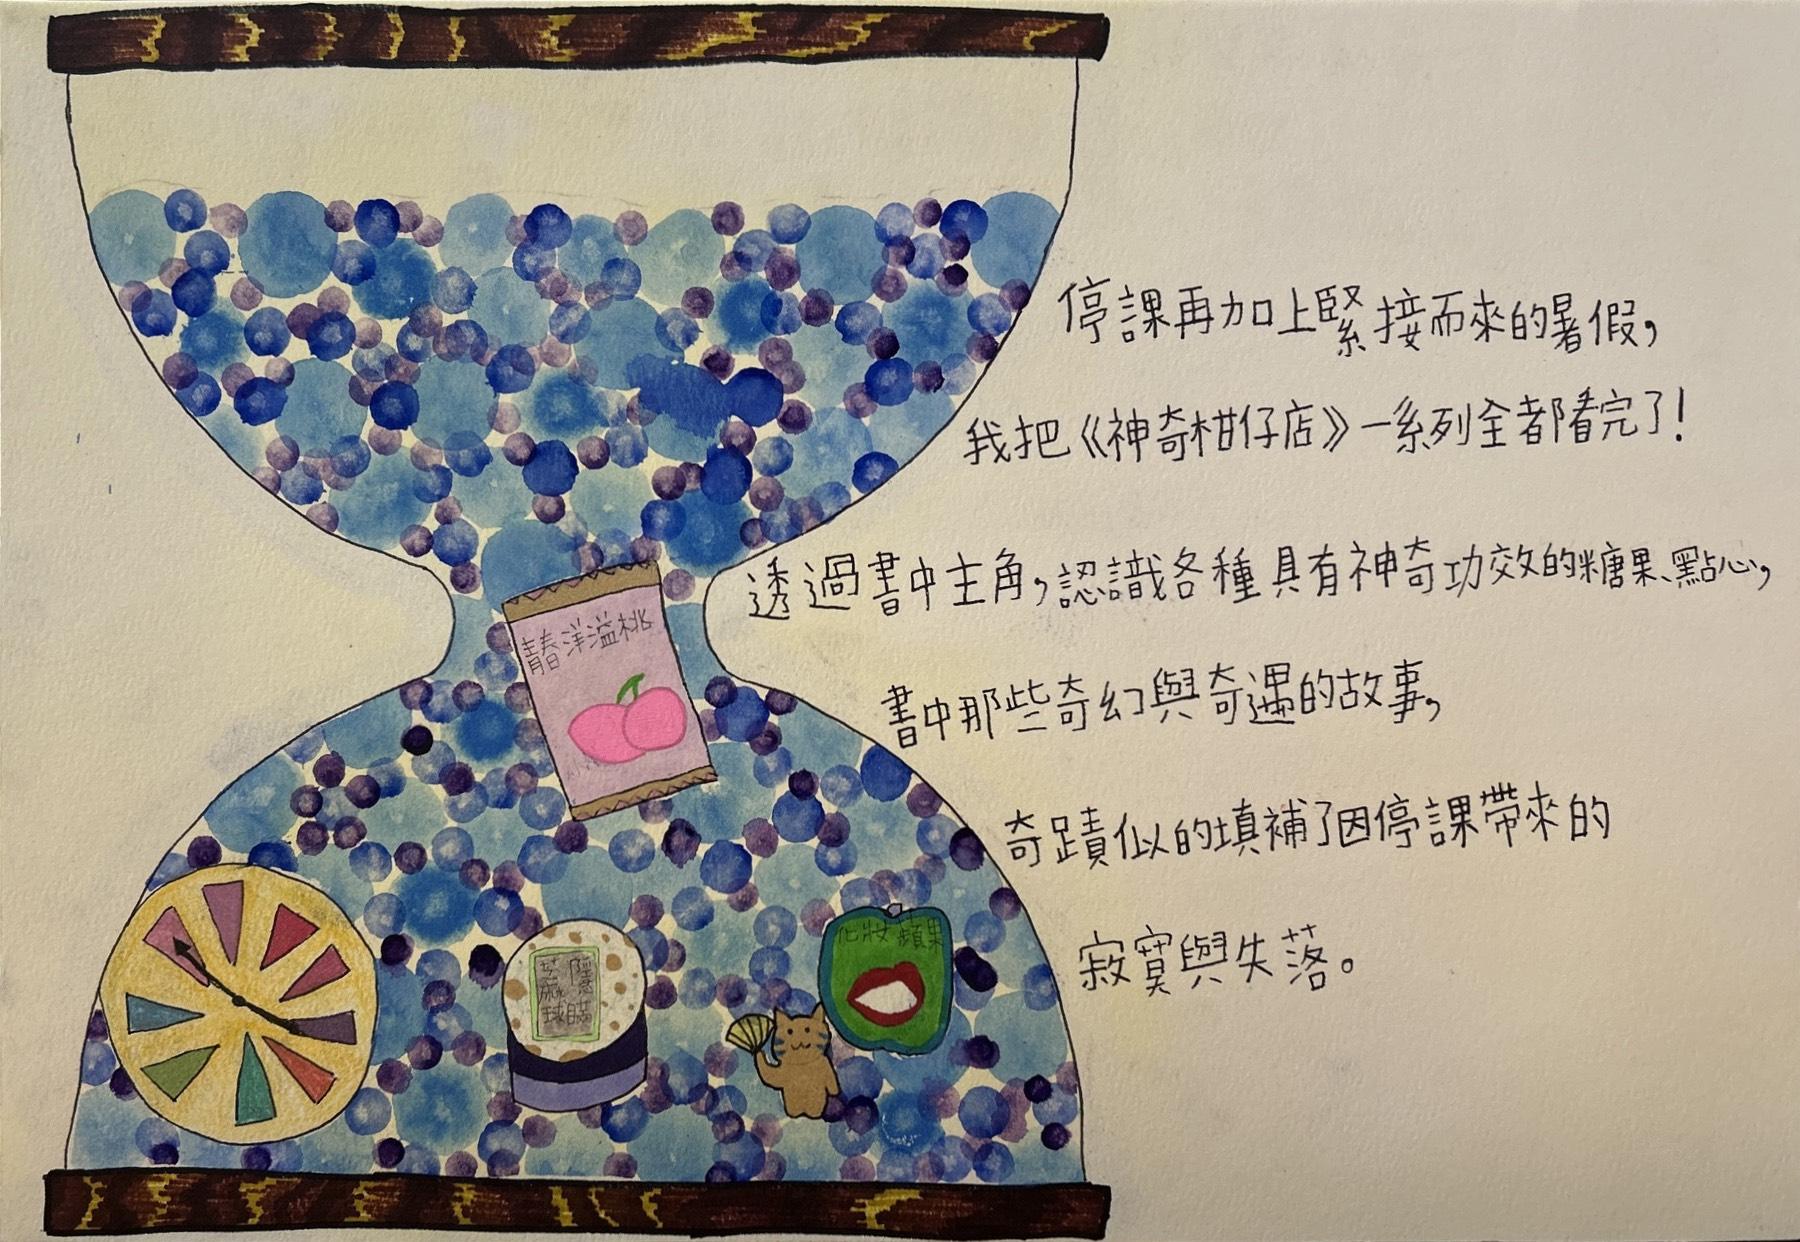 停課再加上緊接而來的暑假,
我把《神奇柑仔店》一系列全都看完了!
透過書中主角,認識各種具有神奇功效的糖果、點心,
書中那些奇幻與奇遇的故事,
奇蹟似的填補了因停課帶來的
寂寞與失落。
青春洋溢桃
隱瞞
芝麻球
化妝蘋果